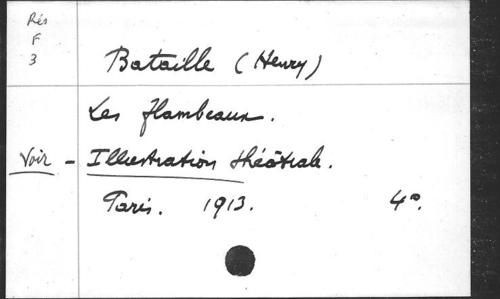 Rés
F
3
Bataille (Henry)
Les flambeaux.
Voir - Illustration théâtrale.
Paris. 1913. 4°.